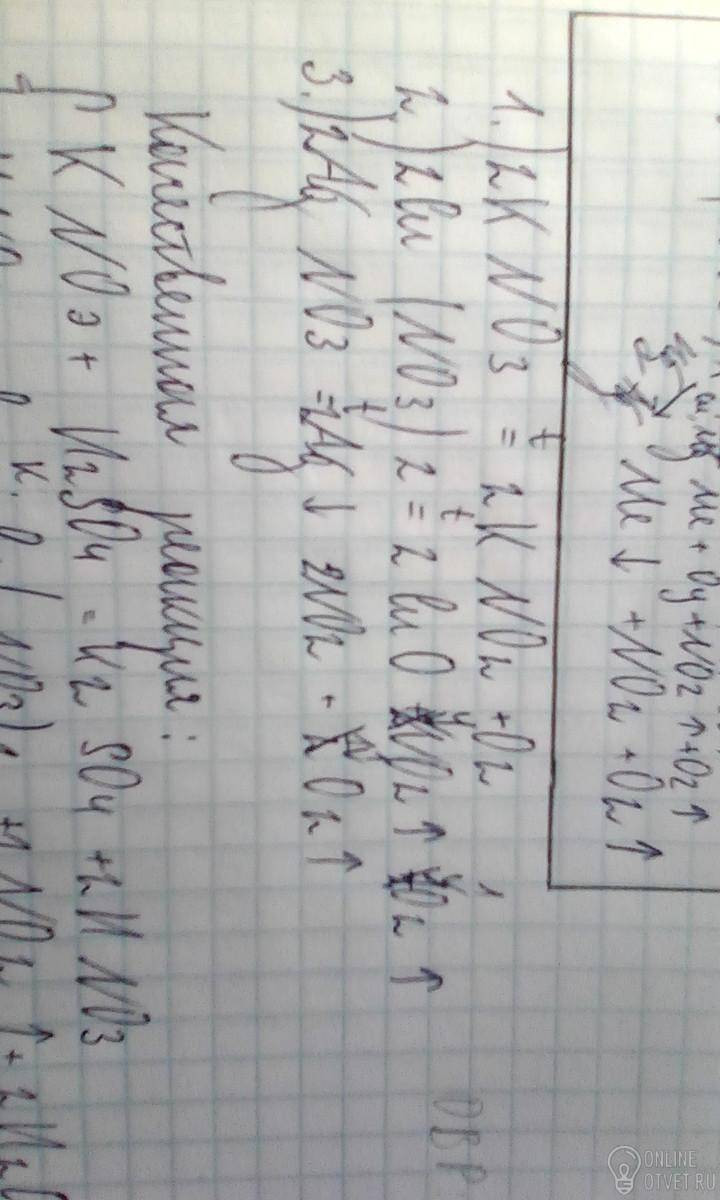 Me + Oy + NO2 ↑ + O2 ↑
Me ↓ + NO2 + O2 ↑
1.) 2K NO3 =t 2K NO2 + O2
2.) 2Cu (NO3)2 =t 2CuO 4NO2 ↑ O2 ↑
3.) 2Ag NO3 =t 2Ag ↓ 2NO2 + O2 ↑
ОВР
Качественная реакция:
K NO3 + H2SO4 = K2 SO4 + 2H NO3
NO3)2 + 2 NO2 ↑ + 2H2O
ONLINE
OTVET.RU